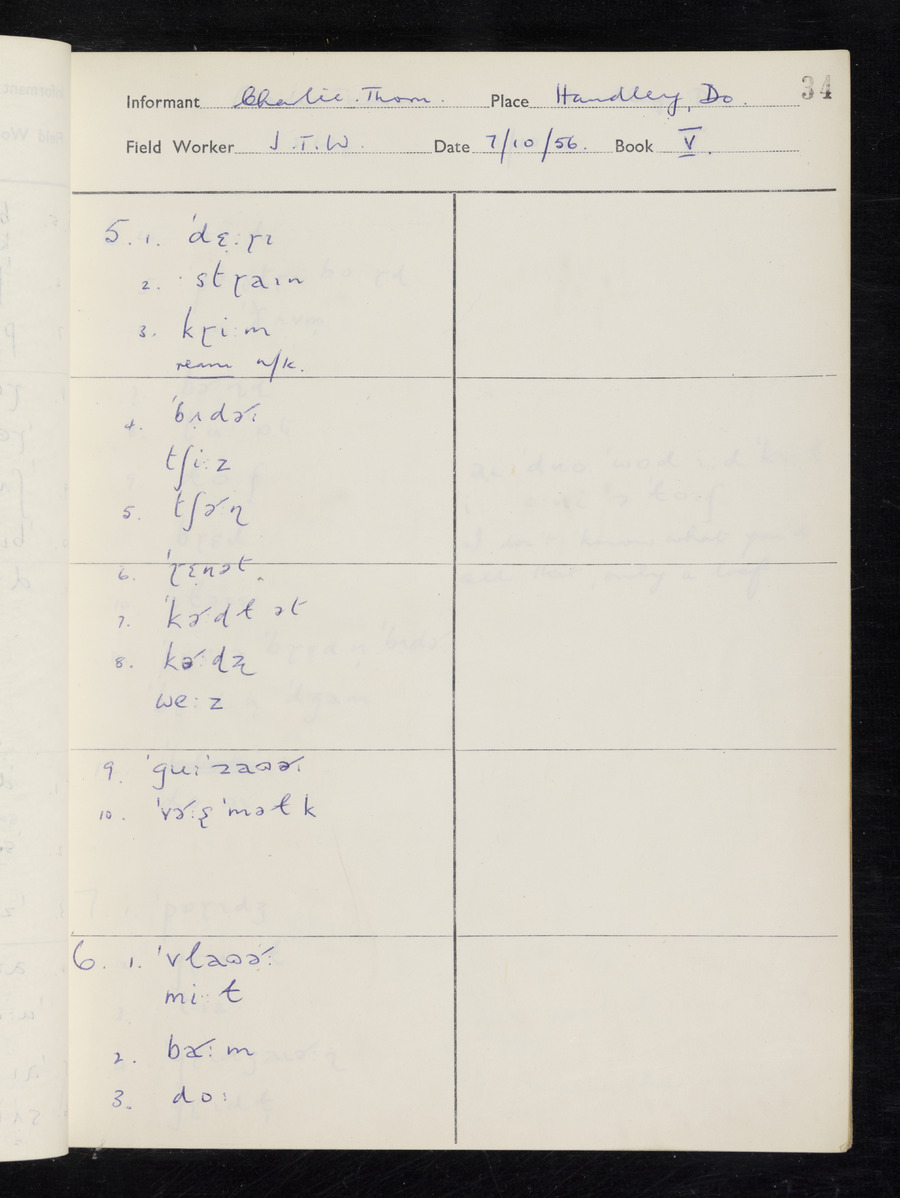 34
Informant Charlie. Thorn. Place Handley, Do.
Field Worker J.T.W. Date 7/10/56. Book V.
5. 1. ˈdɛ:ɽɪ
2. stɽaɪn
3. kɽi:m
ream n/k.
4. ˈbʌdɚ:
tʃi:z
5. tʃɚɳ
6. ˈɽɛnət
7. ˈkɚdɫət
8. kɚ:dʐ
we:z
9. ˈgu:ˈzaʊɚ:
10. ˈvɚ:ɛ̨ˈməɫk
6. 1. ˈvlaʊɚ:
mi:ɫ
2. bɚ:m
3. do: